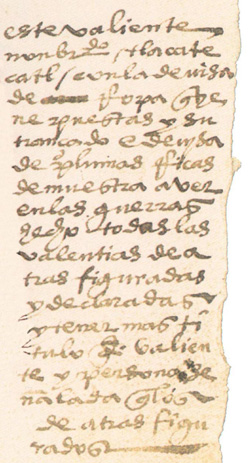 este valiente
nonbrado tlacate
catl con la devisa
de ropa q̄ tie
ne puestas y su
trançado e devisa
de plumas ricas
demuestra aver
en las guerras
hecho todas las
valentias de a
tras figuradas
y declaradas
y tener mas ti
tulo de valien
te y persona se
ñalada q̄ los
de atras figu
rados